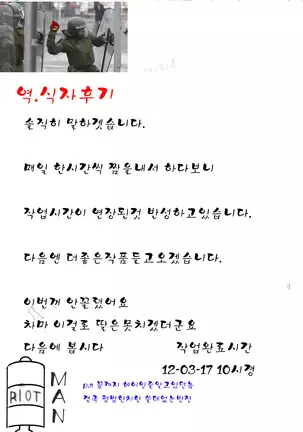 역.식자후기
솔직히 말하겟습니다.
매일 한시간씩 짬을내서 하다보니
작업시간이 연장된것 반성하고있습니다.
다음엔 더좋은작품들고오겠습니다.
이번꺼 안꼴렸어요
차마 이걸로 딸은못치겠더군요
다음에 봅시다 작업완료시간
12-03-17 10시경
p.s 끝까지
RIOT
MAN